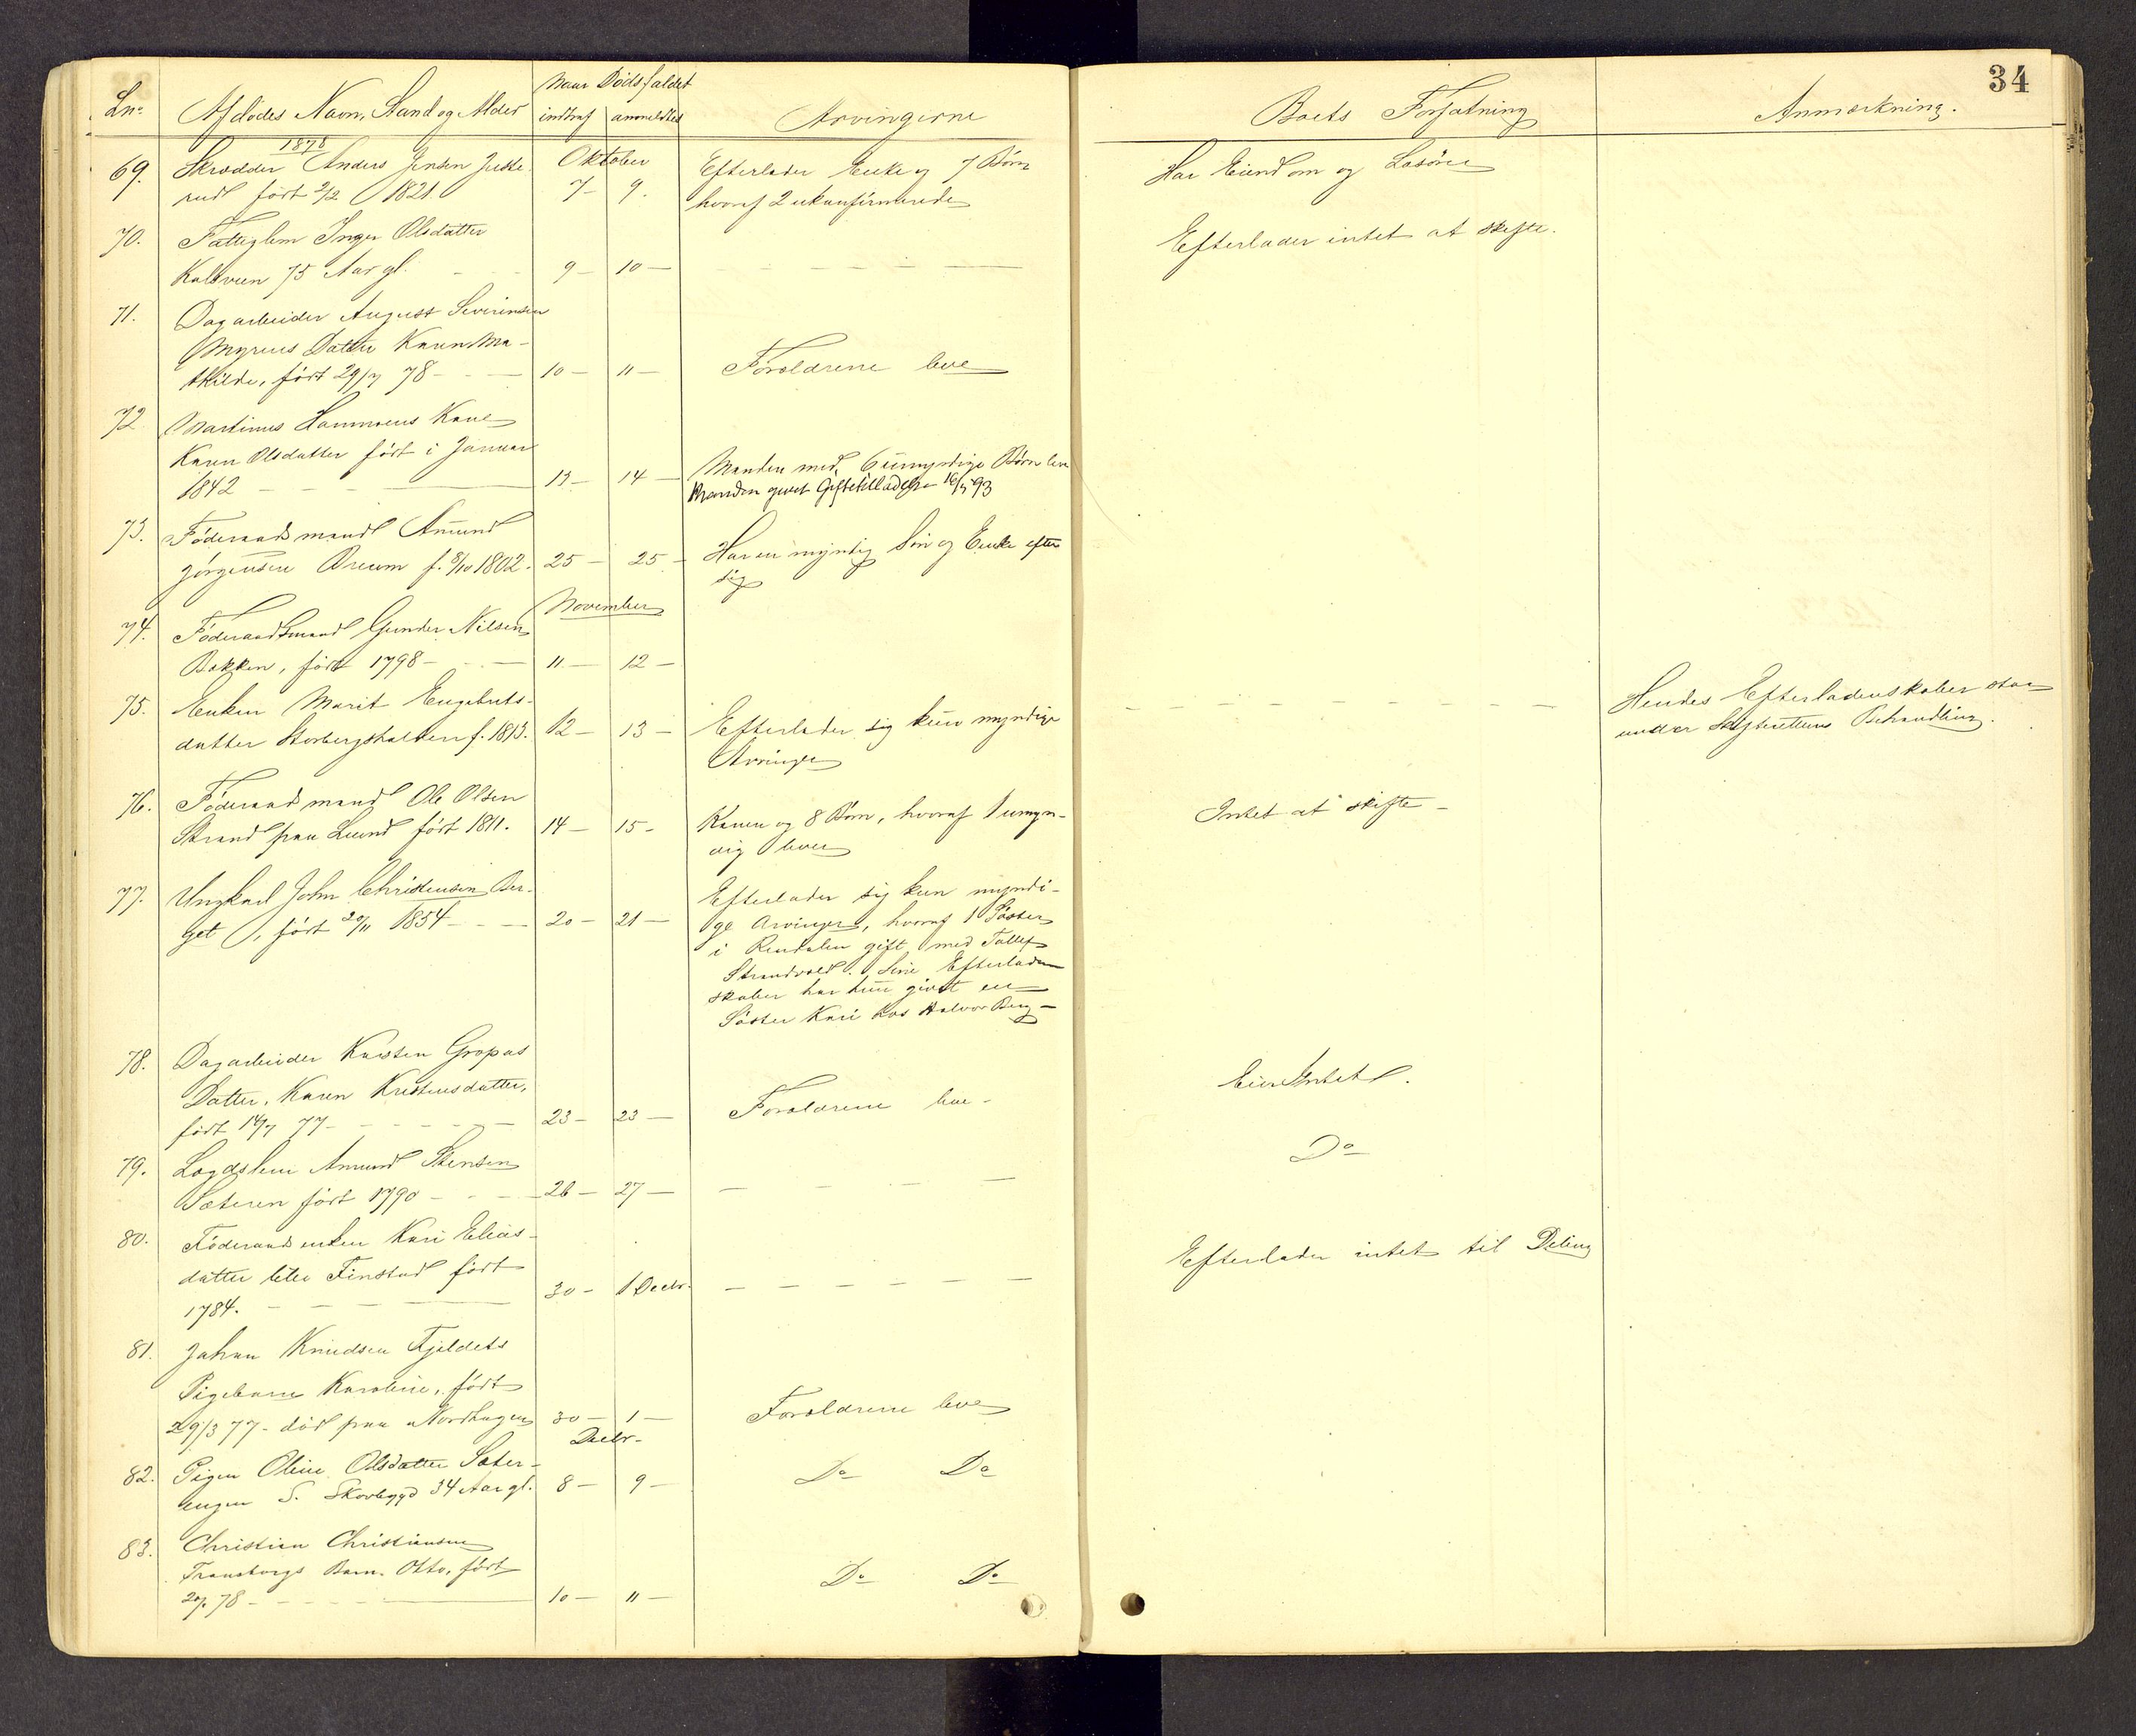 34
Lno Afdødes Navn, Stand og Alder
Naar Dødsfaldet
indtraf anmeldtes
Arvingerne
Boets Forfatning
Anmærkning.
1878
Oktober
69. Skrædder Anders Jensen Juste-
rud født 2/2 1821.
7- 9.
Efterlader Enke og 7 Børn
hvoraf 2 ukonfirmerede
Har Eiendom og Løsøre
70. Fattiglem Inger Olsdatter
75 Aar gl. - - 9- 10-
Efterlader intet at skifte.
71. Dagarbeider August Severinsen
Myrens Datter Karen Ma-
thilde, født 29/7 78 - - 10- 11-
Forældrene leve
72 Martinus Hammerens Kone
Karen Olsdatter født i Januar
1842 - - 13- 14-
Manden med 6 umyndige Børn leve
Manden givet Giftetilladelse 16/5 93
73. Föderaadsmand Amund
Jörgensen Öreum f. 8/10 1802. 25- 25-
Har en myndig Sön og Enke efter
sig
November
74. Föderaadsmand Gunder Nilsen
Bakken, født 1798 - - 11- 12-
75. Enken Marit Engebrets-
datter Storbergshalven f. 1813. 12- 13-
Efterlader sig kun myndige
Arvinger
Hendes Efterladenskaber staar
under Skifterettens Behandling.
76. Föderaadsmand Ole Olsen
Strand paa Lund født 1811. 14- 15-
Konen og 8 Børn, hvoraf 1 umyn-
dig lever
Intet at skifte -
77. Ungkarl John Christensen Ber-
get, født 20/11 1854 - - 20- 21-
Efterlader sig kun myndi-
ge Arvinger, hvoraf 1 Søster
i Rendalen gift med Tollef
Strandvold. Sine Efterladen-
skaber har han givet en
Søster Kari hos Halvor Berg-
78. Dagarbeider Karsten Gropas
Datter, Karen Kristensdatter,
født 14/7 77 - - 23- 23-
Forældrene leve -
Eier Intet.
79. Lægdslem Amund Stensen
Sæteren født 1790 - - 26- 27-
Do
80. Föderaadsenken Kari Elias-
datter lille Finstad født
1784. - - 30- 1 Decbr.
Efterlader intet til Deling
81. Johan Knudsen Fjeldets
Pigebarn Karoline, født
29/3 77 - död paa Nordhagen 30- 1-
Forældrene leve
Decbr-
82. Pigen Oline Olsdatter Sæter-
engen S. Skovbygd 34 Aar gl. 8- 9-
Do Do
83. Christian Christiansen
Transborgs Barn. Otto, født
78 - - 10- 11-
Do Do